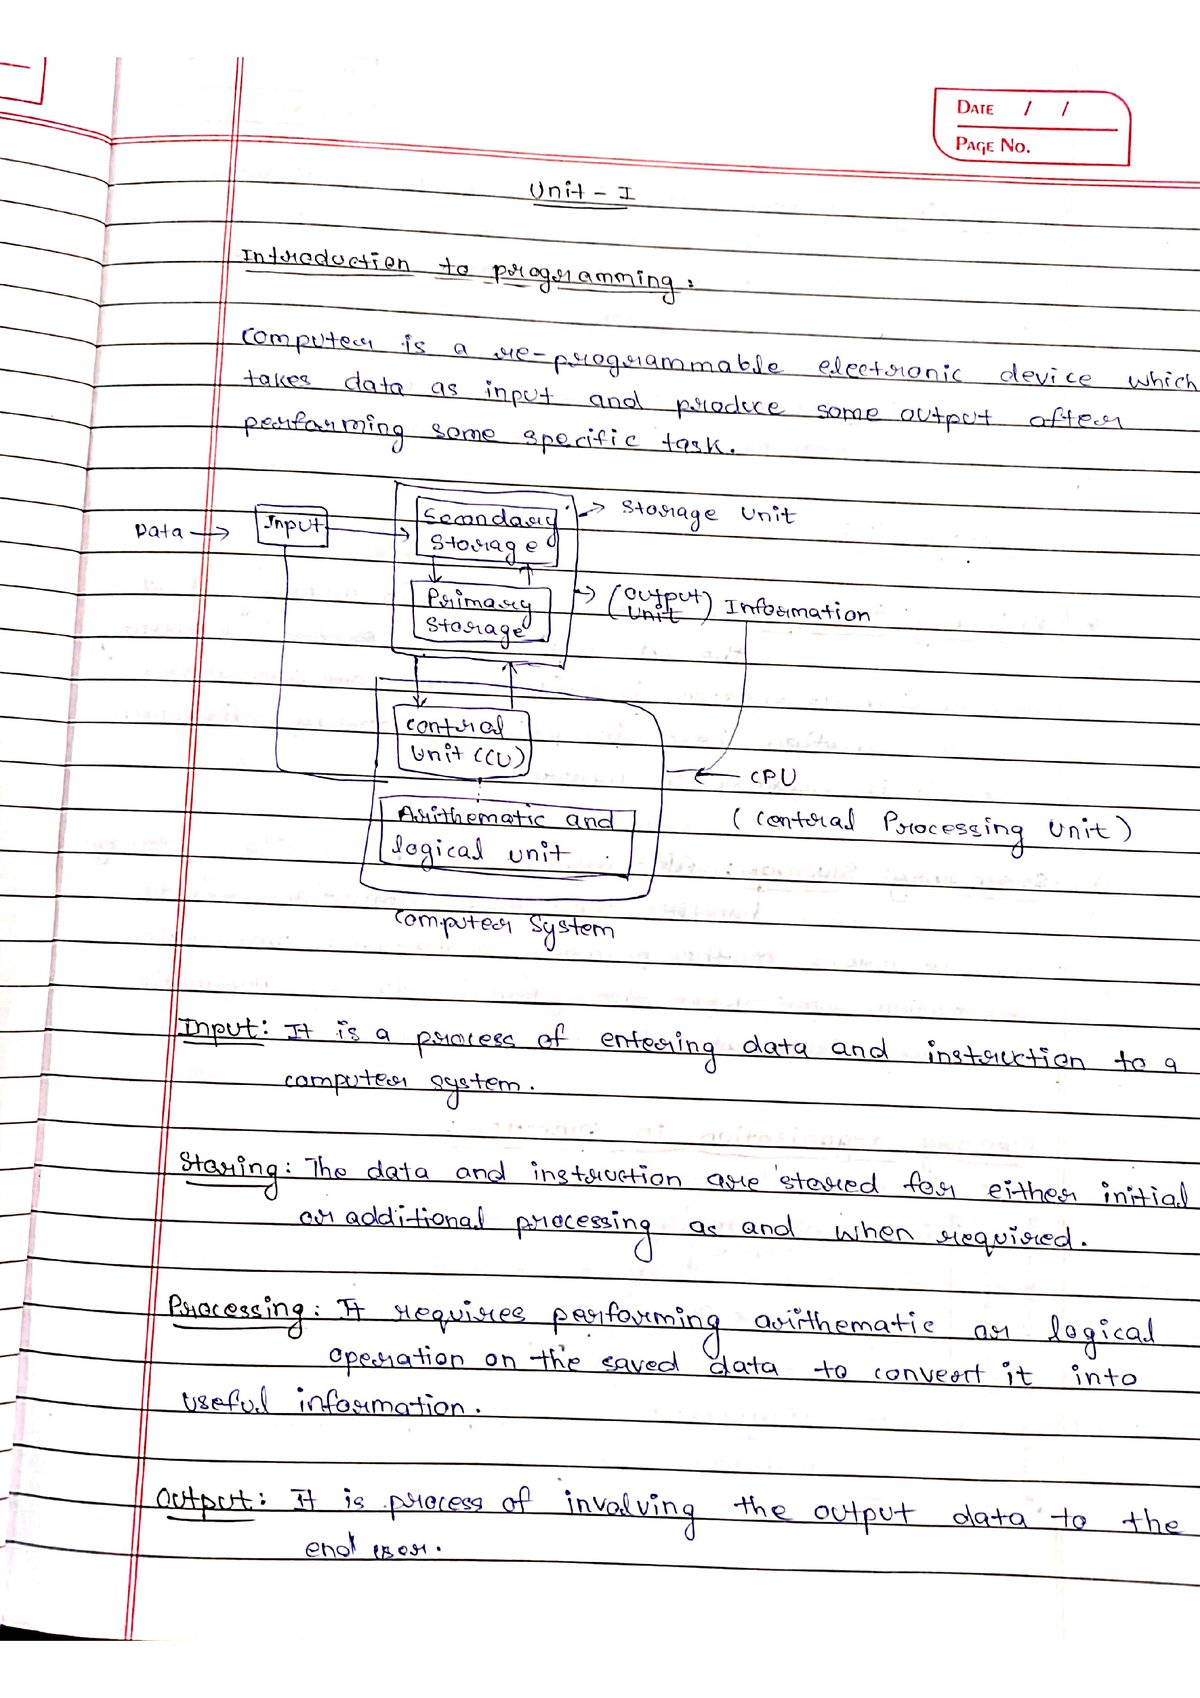 DATE / /
PAGE NO.
Unit - I
Introduction to programming :
Computer is a re-programmable electronic device which
takes data as input and produce some output after
performing some specific task.
Data → Input
Secondary
Storage
→ Storage Unit
Primary
Storage
→ (Output Unit) Information
Control
Unit (CU)
← CPU
(Central Processing Unit)
Arithematic and
logical unit
Computer System
Input: It is a process of entering data and instruction to a
computer system.
Storing: The data and instruction are stored for either initial
or additional processing as and when required.
Processing: It requires performing arithematic or logical
operation on the saved data to convert it into
useful information.
Output: It is process of involving the output data to the
end user.